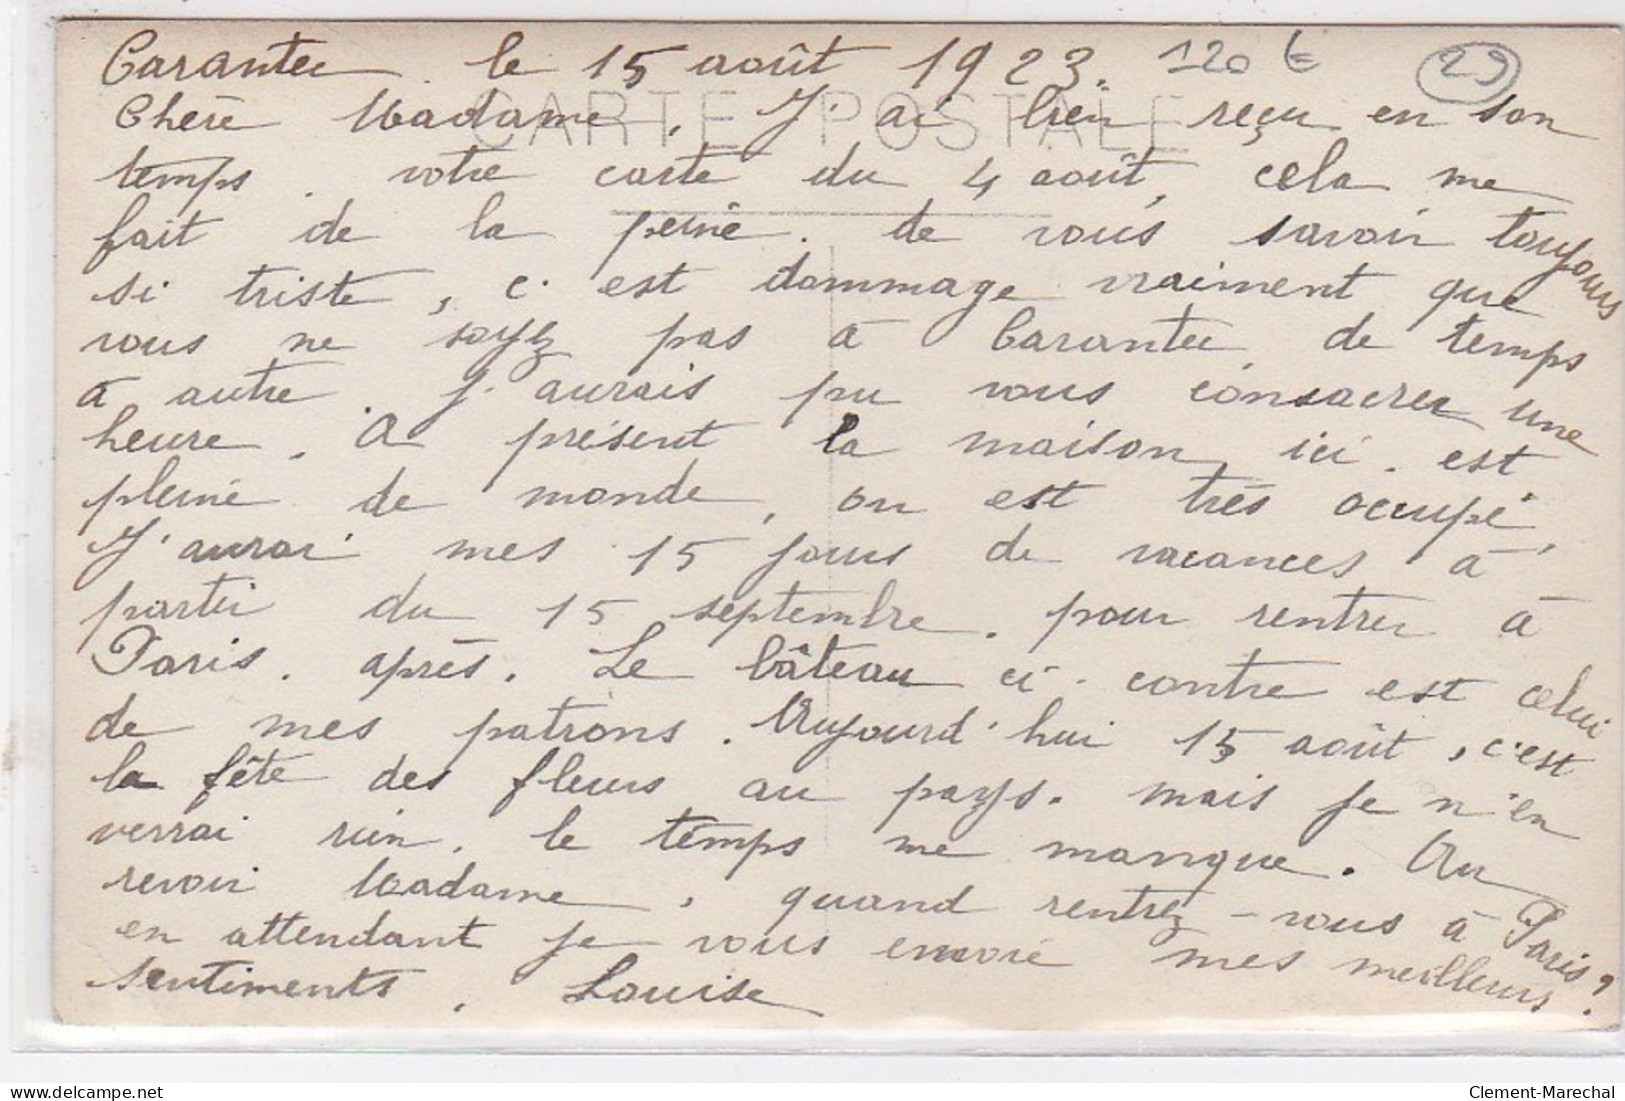 Carantec. le 15 août 1923. 120 € 29
CARTE POSTALE
Chère Madame, J'ai bien reçu en son
temps, votre carte du 4 août, cela me
fait de la peine, de vous savoir toujours
si triste, c'est dommage vraiment que
vous ne soyez pas à Carantec, de temps
à autre, j'aurais pu vous consacrer une
heure. A présent la maison ici. est
pleine de monde, on est très occupé,
J'aurai mes 15 jours de vacances à
partir du 15 septembre. pour rentrer à
Paris. après. Le bâteau ci-contre est celui
de mes patrons. Aujourd'hui 15 août, c'est
la fête des fleurs au pays. mais je n'en
verrai rien, le temps me manque. Au
revoir Madame, quand rentrez-vous à Paris?
en attendant je vous envoie mes meilleurs.
sentiments, Louise
Clement-Marechal
delcampe.net